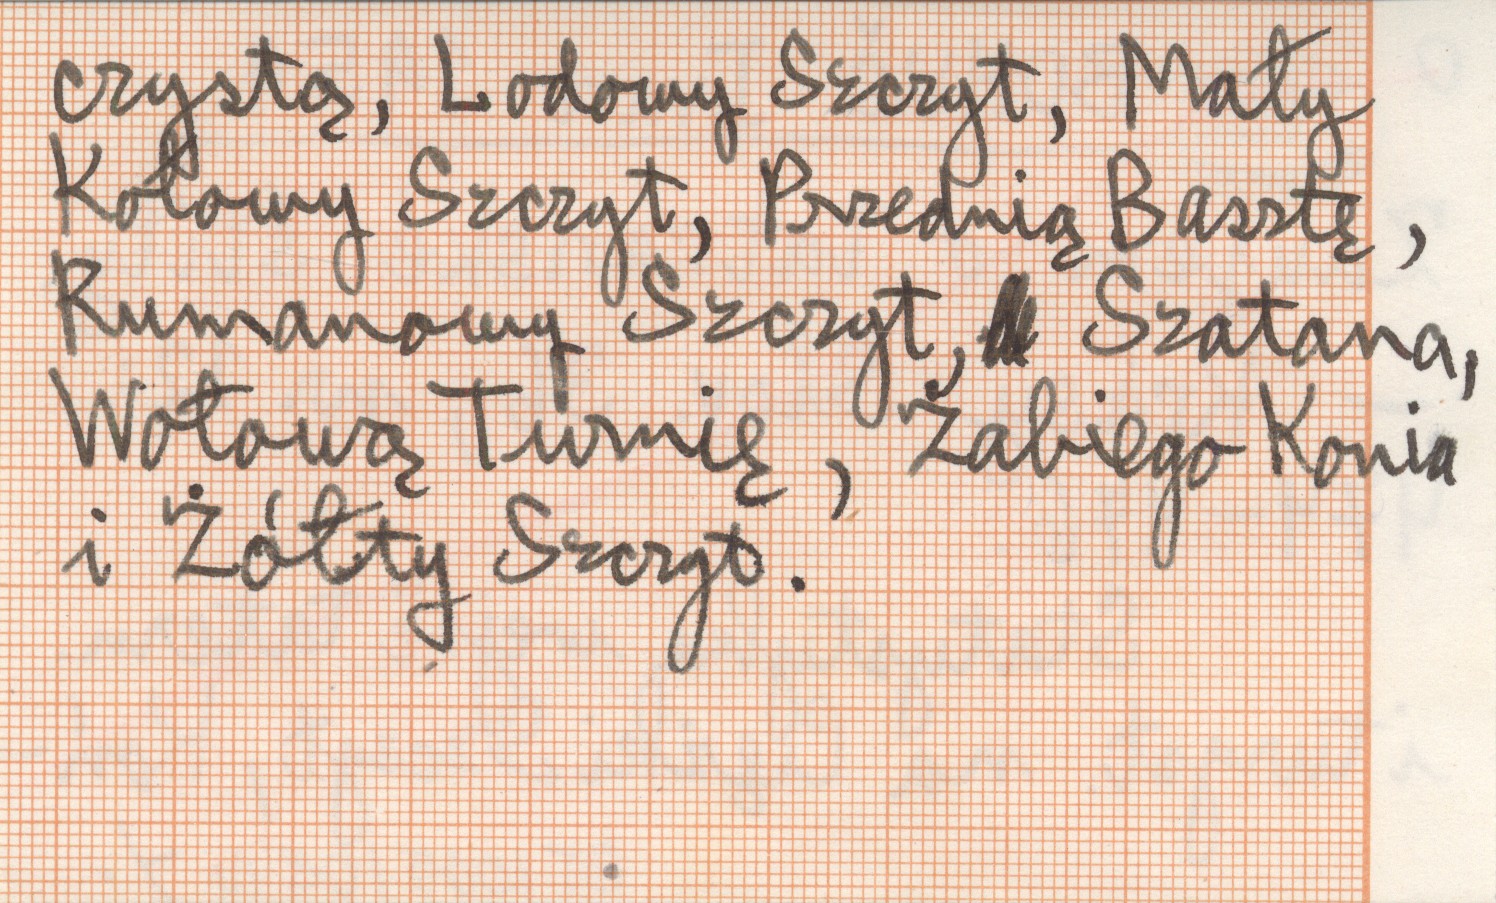 czystą, Lodowy Szczyt, Mały
Kołowy Szczyt, Przednią Basztę,
Rumanowy Szczyt, Szatana,
Wołową Turnię, Żabiego Konia
i Żółty Szczyt.